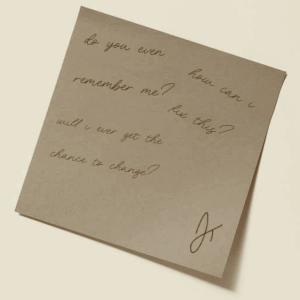 do you even
remember me?
how can i
fix this?
will i ever get the
chance to change?
JT